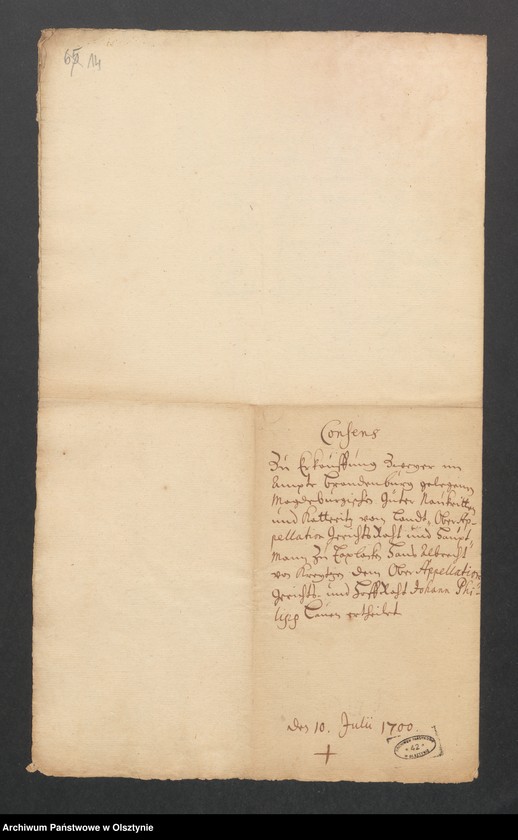 14
Consens
Zu Erkauffung Zweyer im
Ampte Brandenburg gelegenen
Magdeburgischen Güter Naukritten
und Kattreitz vom Landt- Ober Ap-
pellation Gerichts Raht und Haupt
Mann Zu Taplacken Hans Albrecht
von Kreytzen dem Ober Appellation
Gerichts- und Hoff Raht Johann Phi-
lipp ertheilet
den 10. Julii 1700.
42
Archiwum Państwowe w Olsztynie